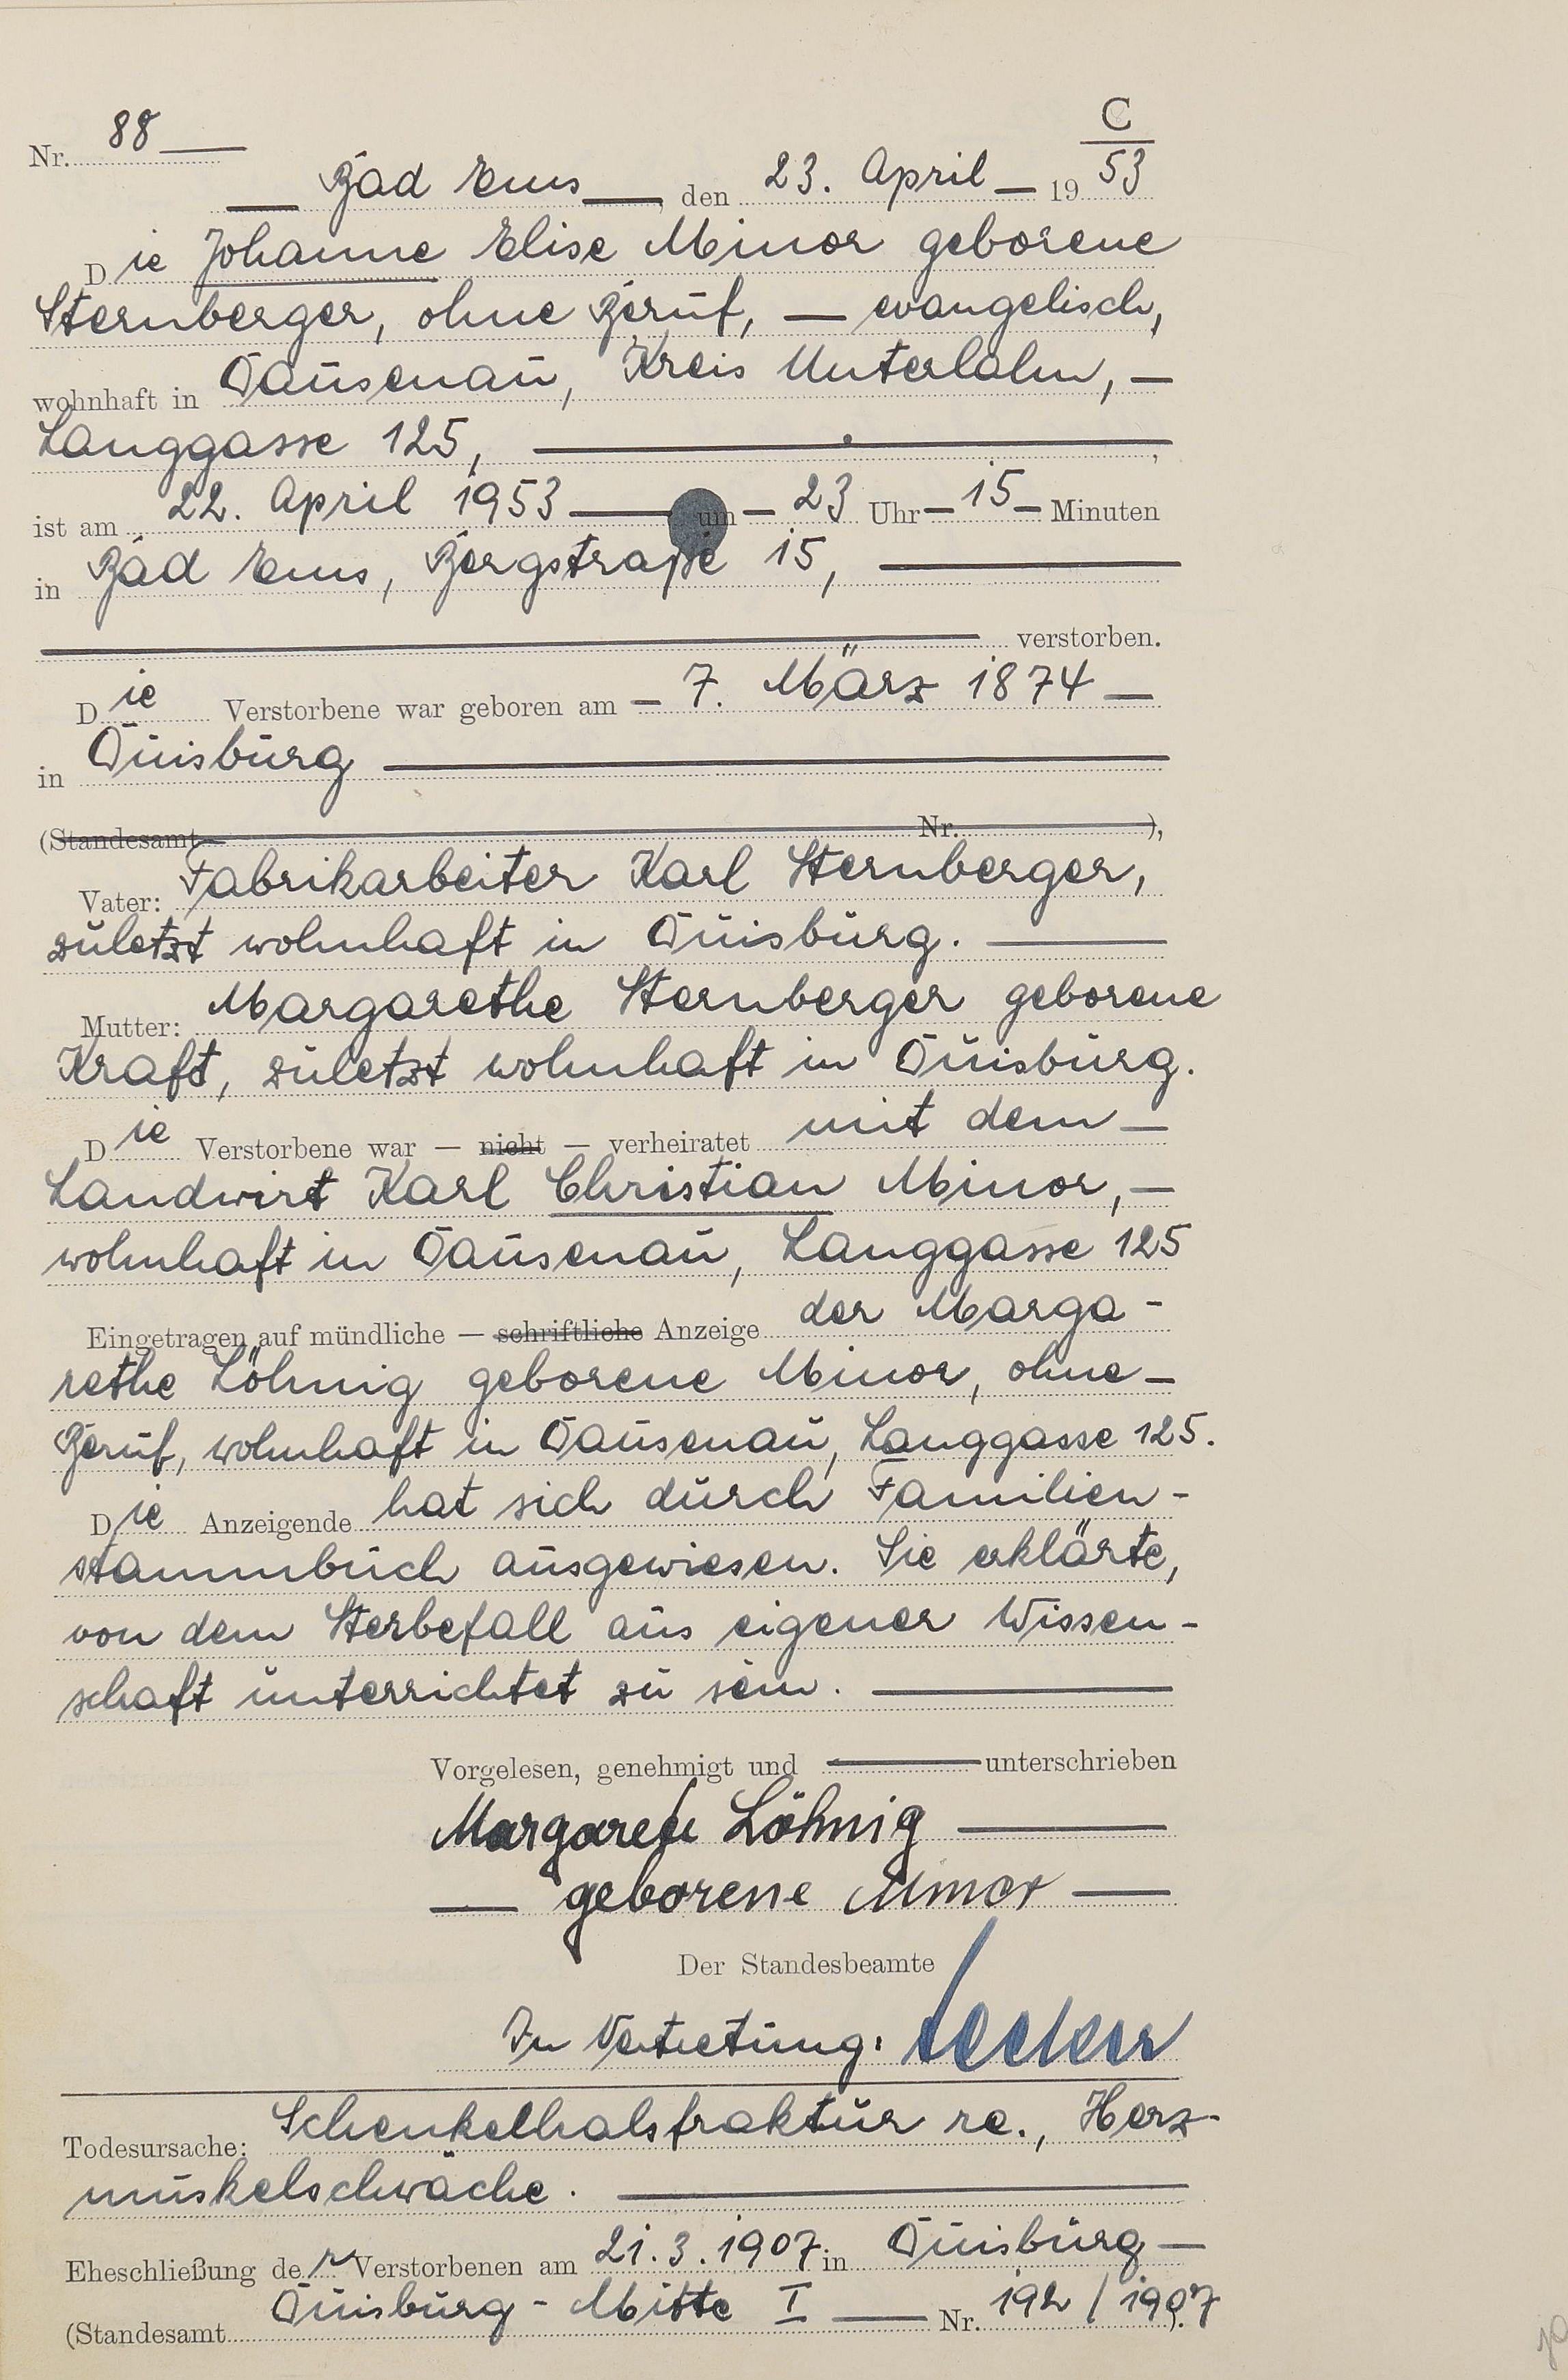 C
Nr. 88 —
— Bad Ems —, den 23. April — 19 53
Die Johanne Elise Minor geborene
Sternberger, ohne Beruf, — evangelisch,
wohnhaft in Dausenau, Kreis Unterlahn, —
Langgasse 125, — ,
ist am 22. April 1953 — um — 23 Uhr — 15 — Minuten
in Bad Ems, Bergstraße 15, —
— verstorben.
Die Verstorbene war geboren am — 7. März 1874 —
in Duisburg —
(Standesamt — Nr. — ),
Vater: Fabrikarbeiter Karl Sternberger,
zuletzt wohnhaft in Duisburg. —
Mutter: Margarethe Sternberger geborene
Kraft, zuletzt wohnhaft in Duisburg.
Die Verstorbene war — nicht — verheiratet mit dem —
Landwirt Karl Christian Minor, —
wohnhaft in Dausenau, Langgasse 125
Eingetragen auf mündliche — schriftliche Anzeige der Marga-
rethe Löhnig geborene Minor, ohne —
Beruf, wohnhaft in Dausenau, Langgasse 125.
Die Anzeigende hat sich durch Familien-
stammbuch ausgewiesen. Sie erklärte,
von dem Sterbefall aus eigener Wissen-
schaft unterrichtet zu sein. —
Vorgelesen, genehmigt und — unterschrieben
Margarete Löhnig —
— geborene Minor —
Der Standesbeamte
In Vertretung:
Todesursache: Schenkelhalsfraktur re., Herz-
muskelschwäche. —
Eheschließung der Verstorbenen am 21.3.1907 in Duisburg —
(Standesamt Duisburg - Mitte I — Nr. 192/1907).